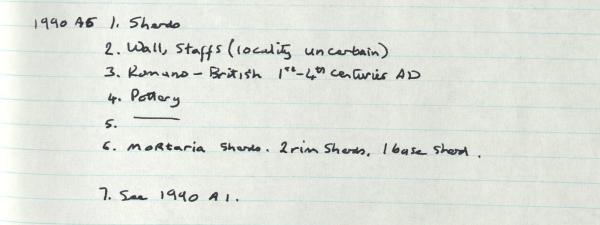 1990 A5 1. Sherds
2. Wall, Staffs (locality uncertain)
3. Romano-British 1st-4th centuries AD
4. Pottery
5. ——
6. Mortaria sherds. 2 rim sherds, 1 base sherd.
7. See 1990 A1.